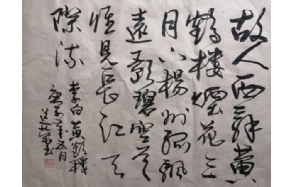 故人西辭黃
鶴樓煙花三
月下揚州孤帆
遠影碧空盡
惟見長江天
際流
李白黃鶴樓
年五月